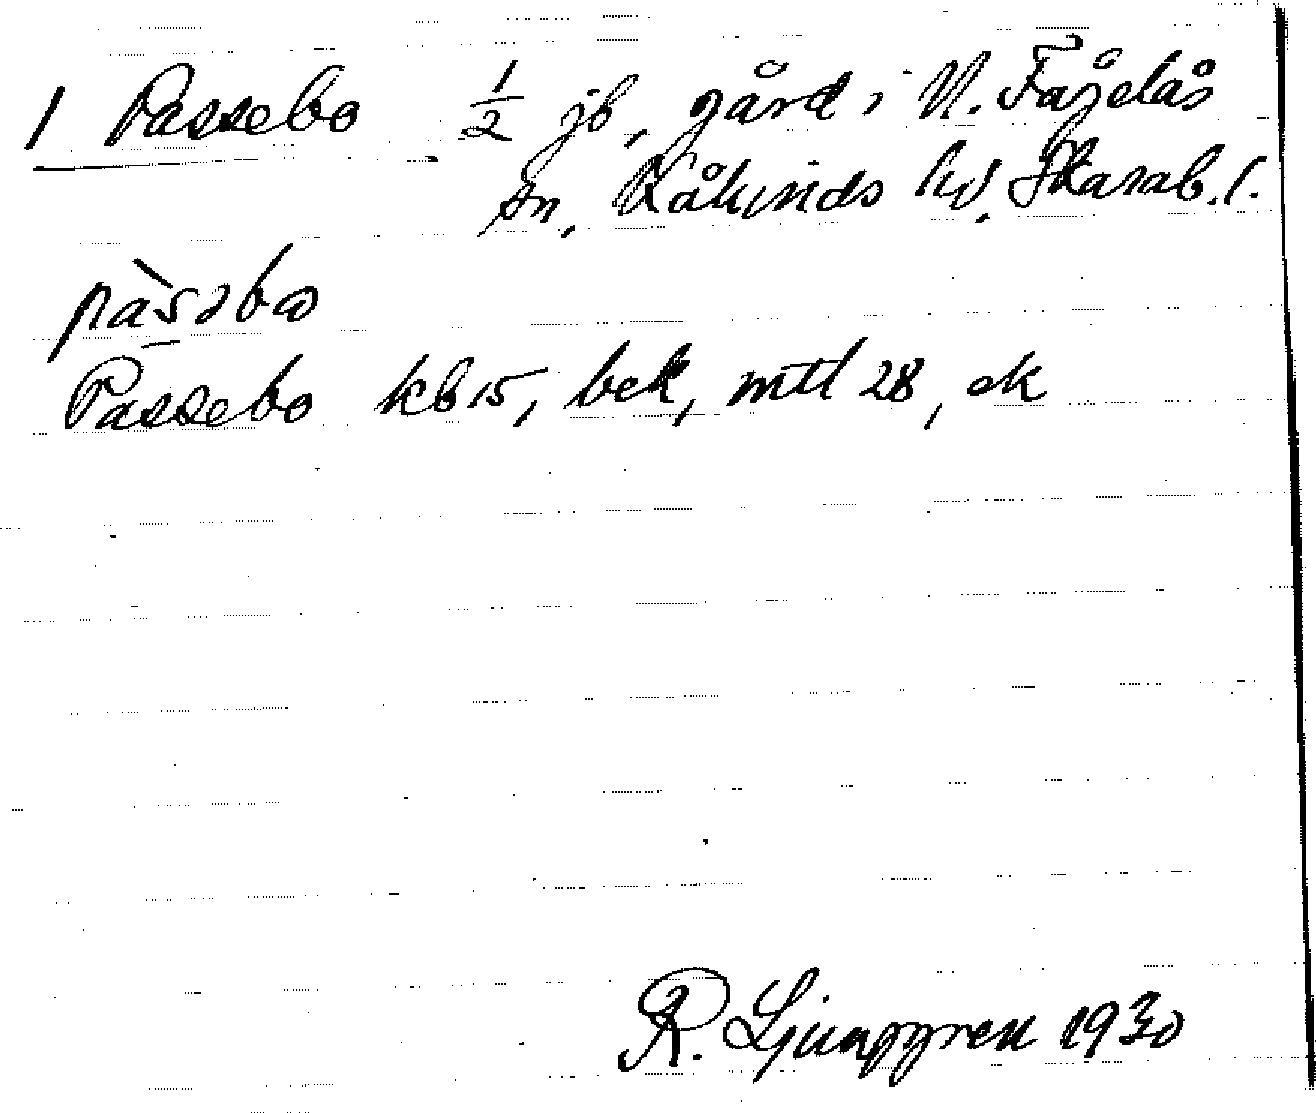 1 Passebo 1/2 jb, gård i N. Fågelås
sn, Kåkinds hd, Skarab. l.
pàsəbω
Passebo kb 15, bek, mtl 28, ek
R. Ljunggren 1930